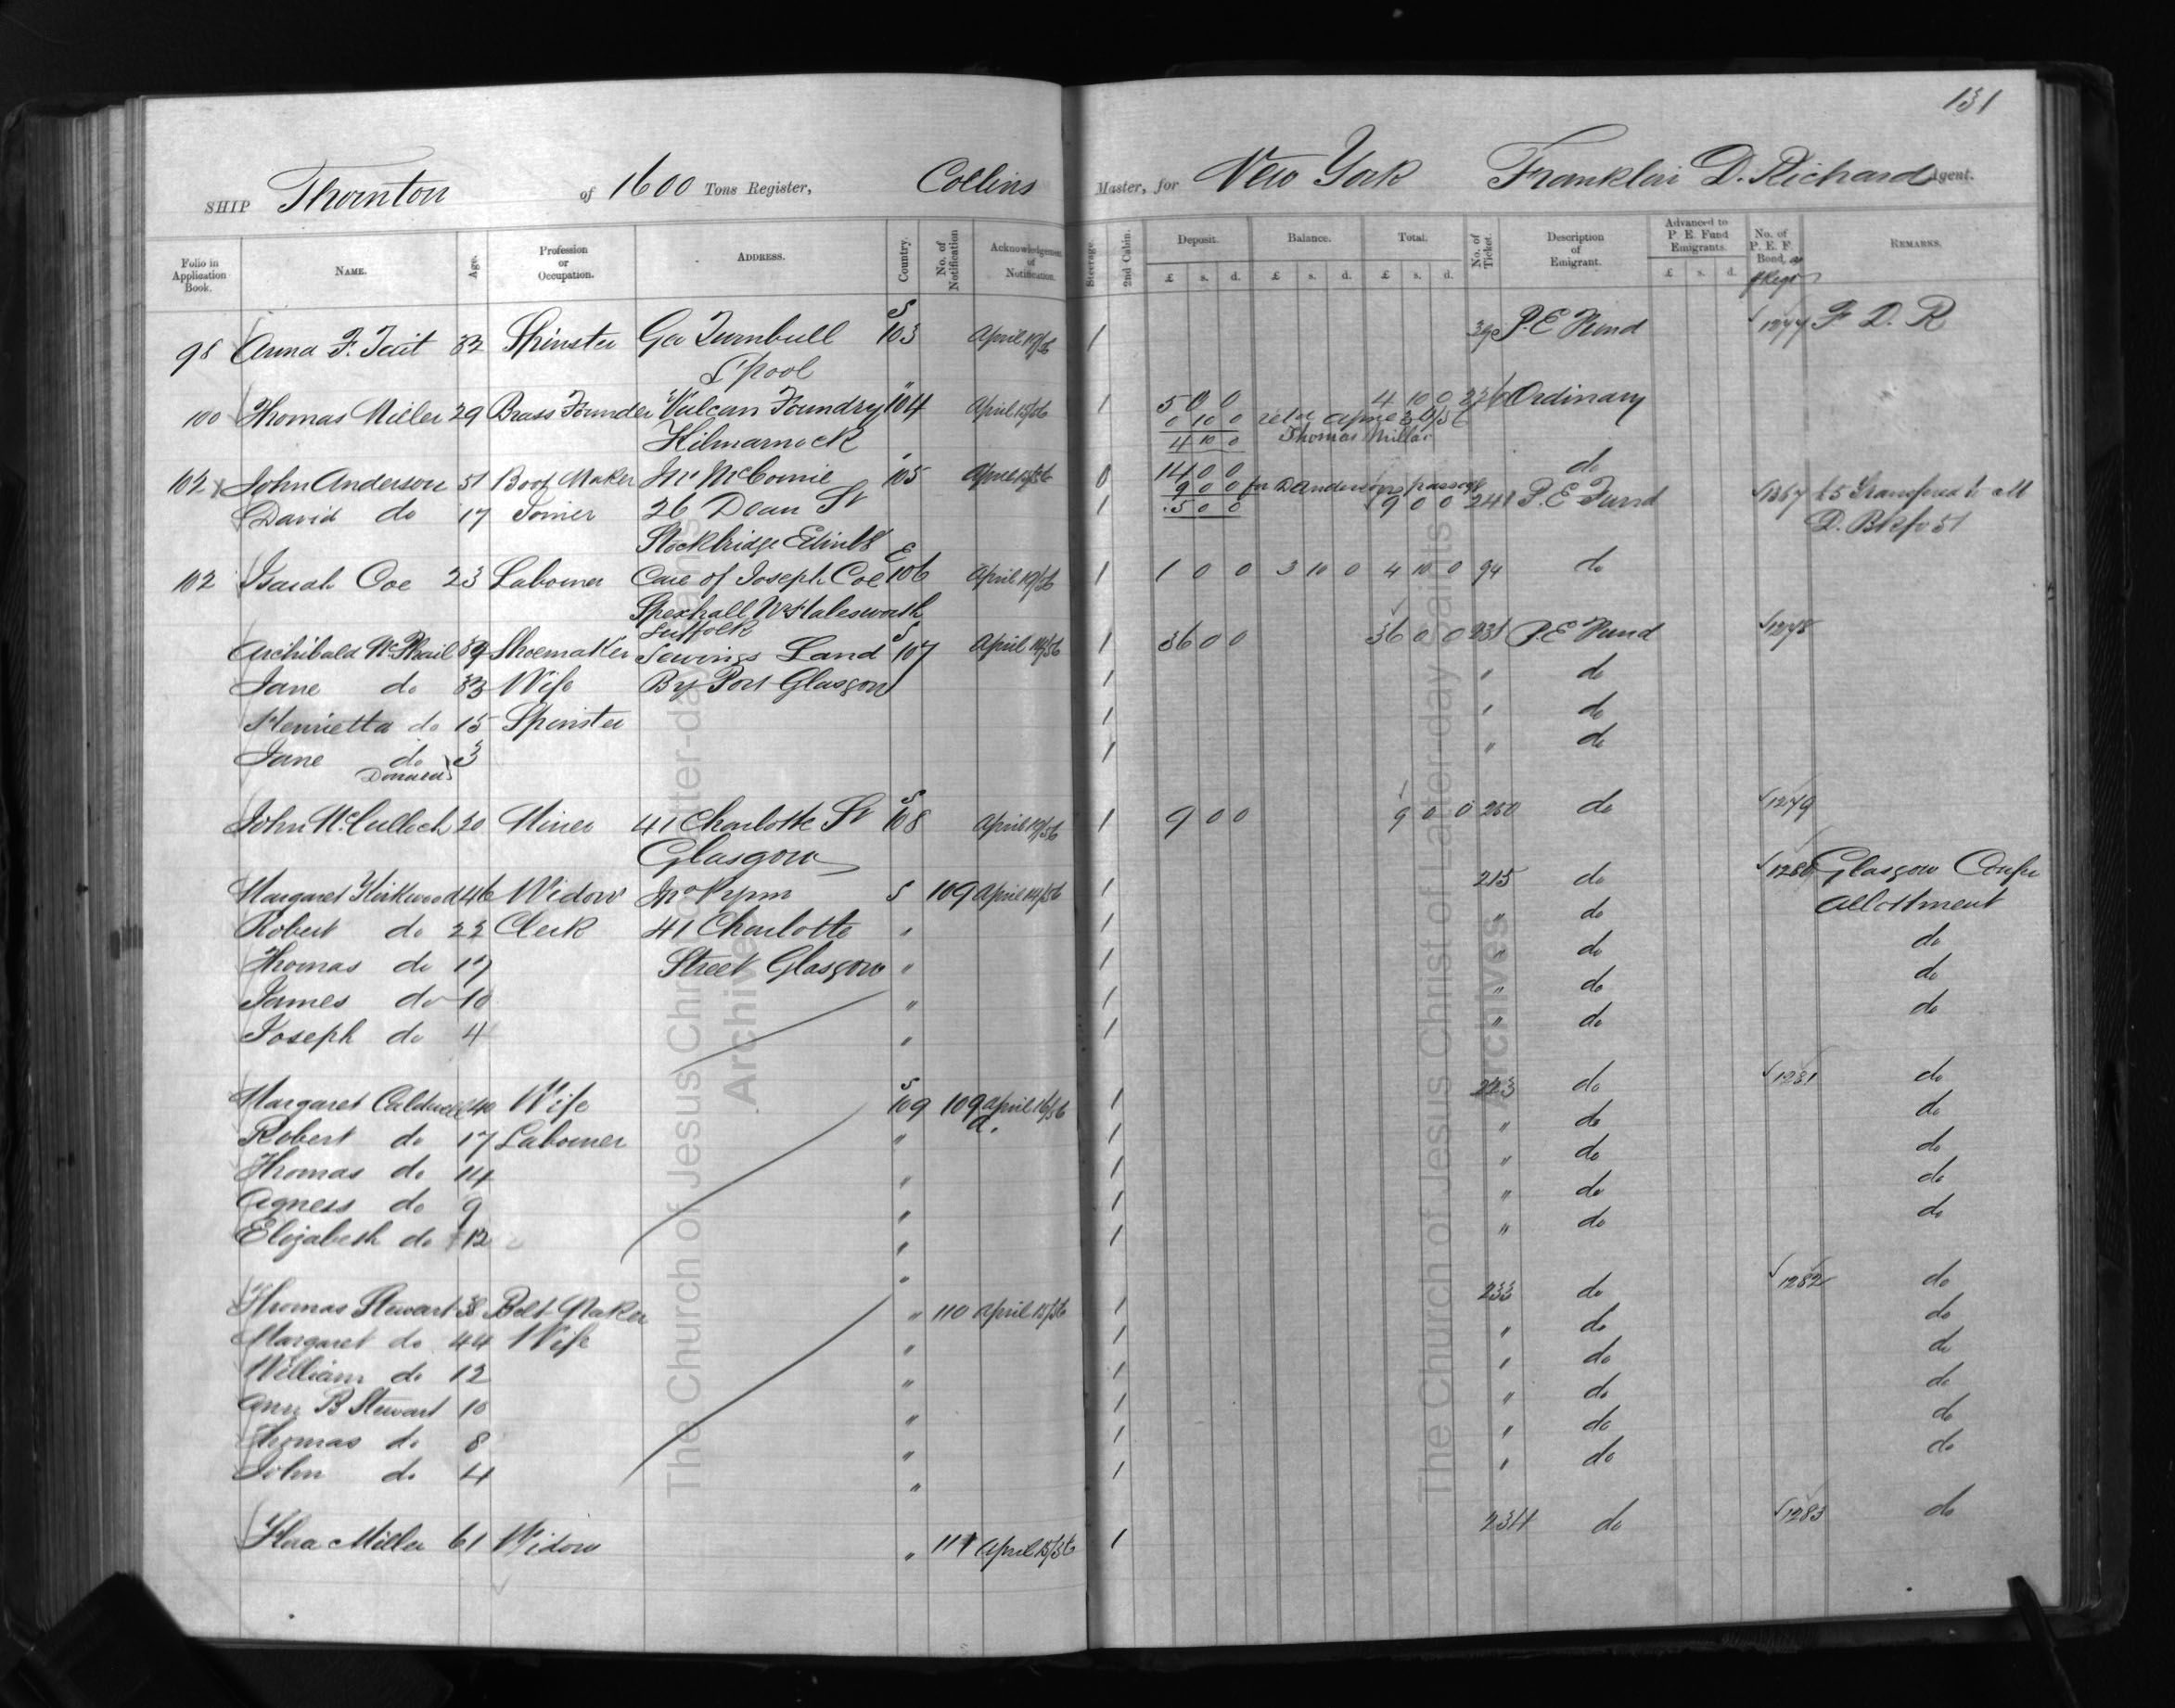 131
SHIP Thornton of 1600 Tons Register, Collins Master, for New York Franklin D. Richard Agent.
Folio in Application Book. NAME. Age. Profession or Occupation. ADDRESS. Country. No. of Notification Acknowledgement of Notification. Steerage. 2nd Cabin. Deposit. £ s. d. Balance. £ s. d. Total. £ s. d. No. of Ticket. Description of Emigrant. Advanced to P. E. Fund Emigrants. £ s. d. No. of P. E. F. Bond, REMARKS.
98 Anna F. Tait 32 Spinster Geo Turnbull S 103 April 19/56 1 P.E Fund 1277 F D. R
L'pool
100 Thomas Miller 29 Brass Founder Vulcan Foundry " 104 April 15/56 1 5 0 0 4 10 0 226 Ordinary
Kilmarnock 0 10 0
4 10 0 Thomas Millar
102 John Anderson 51 Boot Maker Mr McComie 105 April 15/56 0 14 0 0 do
David do 17 Joiner 26 Dean St 1 9 0 0 for D Andersons passage 9 0 0 241 P.E Fund 1367 £5 Transfered to
Stockbridge Edinb 5 0 0 D. Bk fo 51
102 Isaiah Coe 23 Labourer Care of Joseph Coe E 106 April 19/56 1 1 0 0 3 10 0 4 10 0 94 do
Spexhall Nr Halesworth
Suffolk
Archibald McPhail 39 Shoemaker Sewings Land S 107 April 14/56 1 36 0 0 36 0 0 231 P.E Fund 1278
Jane do 33 Wife By Port Glasgow 1 " do
Henrietta do 15 Spinster 1 " do
Jane do 3 1 " do
John McCulloch 20 Miner 41 Charlotte St S 108 April 19/56 1 9 0 0 9 0 0 250 do 1279
Glasgow
Margaret Kirkwood 46 Widow Jno Pymm S 109 April 14/56 1 215 do 1280 Glasgow Confce
Robert do 22 Clerk 41 Charlotte " 1 " do Allottment
Thomas do 17 Street Glasgow " 1 " do do
James do 10 " 1 " do do
Joseph do 4 " 1 " do do
Margaret Caldwell 40 Wife S 109 109 April 16/56 1 223 do 1281 do
Robert do 17 Labourer " 1 " do do
Thomas do 14 " 1 " do do
Agness do 9 " 1 " do do
Elizabeth do 12 " 1 " do do
"
Thomas Stewart 38 Belt Maker " 110 April 15/56 1 233 do 1282 do
Margaret do 44 Wife " 1 " do do
William do 12 " 1 " do do
Ann B Stewart 10 " 1 " do do
Thomas do 8 " 1 " do do
John do 4 " 1 " do do
Flora Miller 61 Widow " 111 April 15/56 1 234 do 1283 do
The Church of Jesus Christ of Latter-day Saints
Archives
The Church of Jesus Christ of Latter-day Saints
Archives